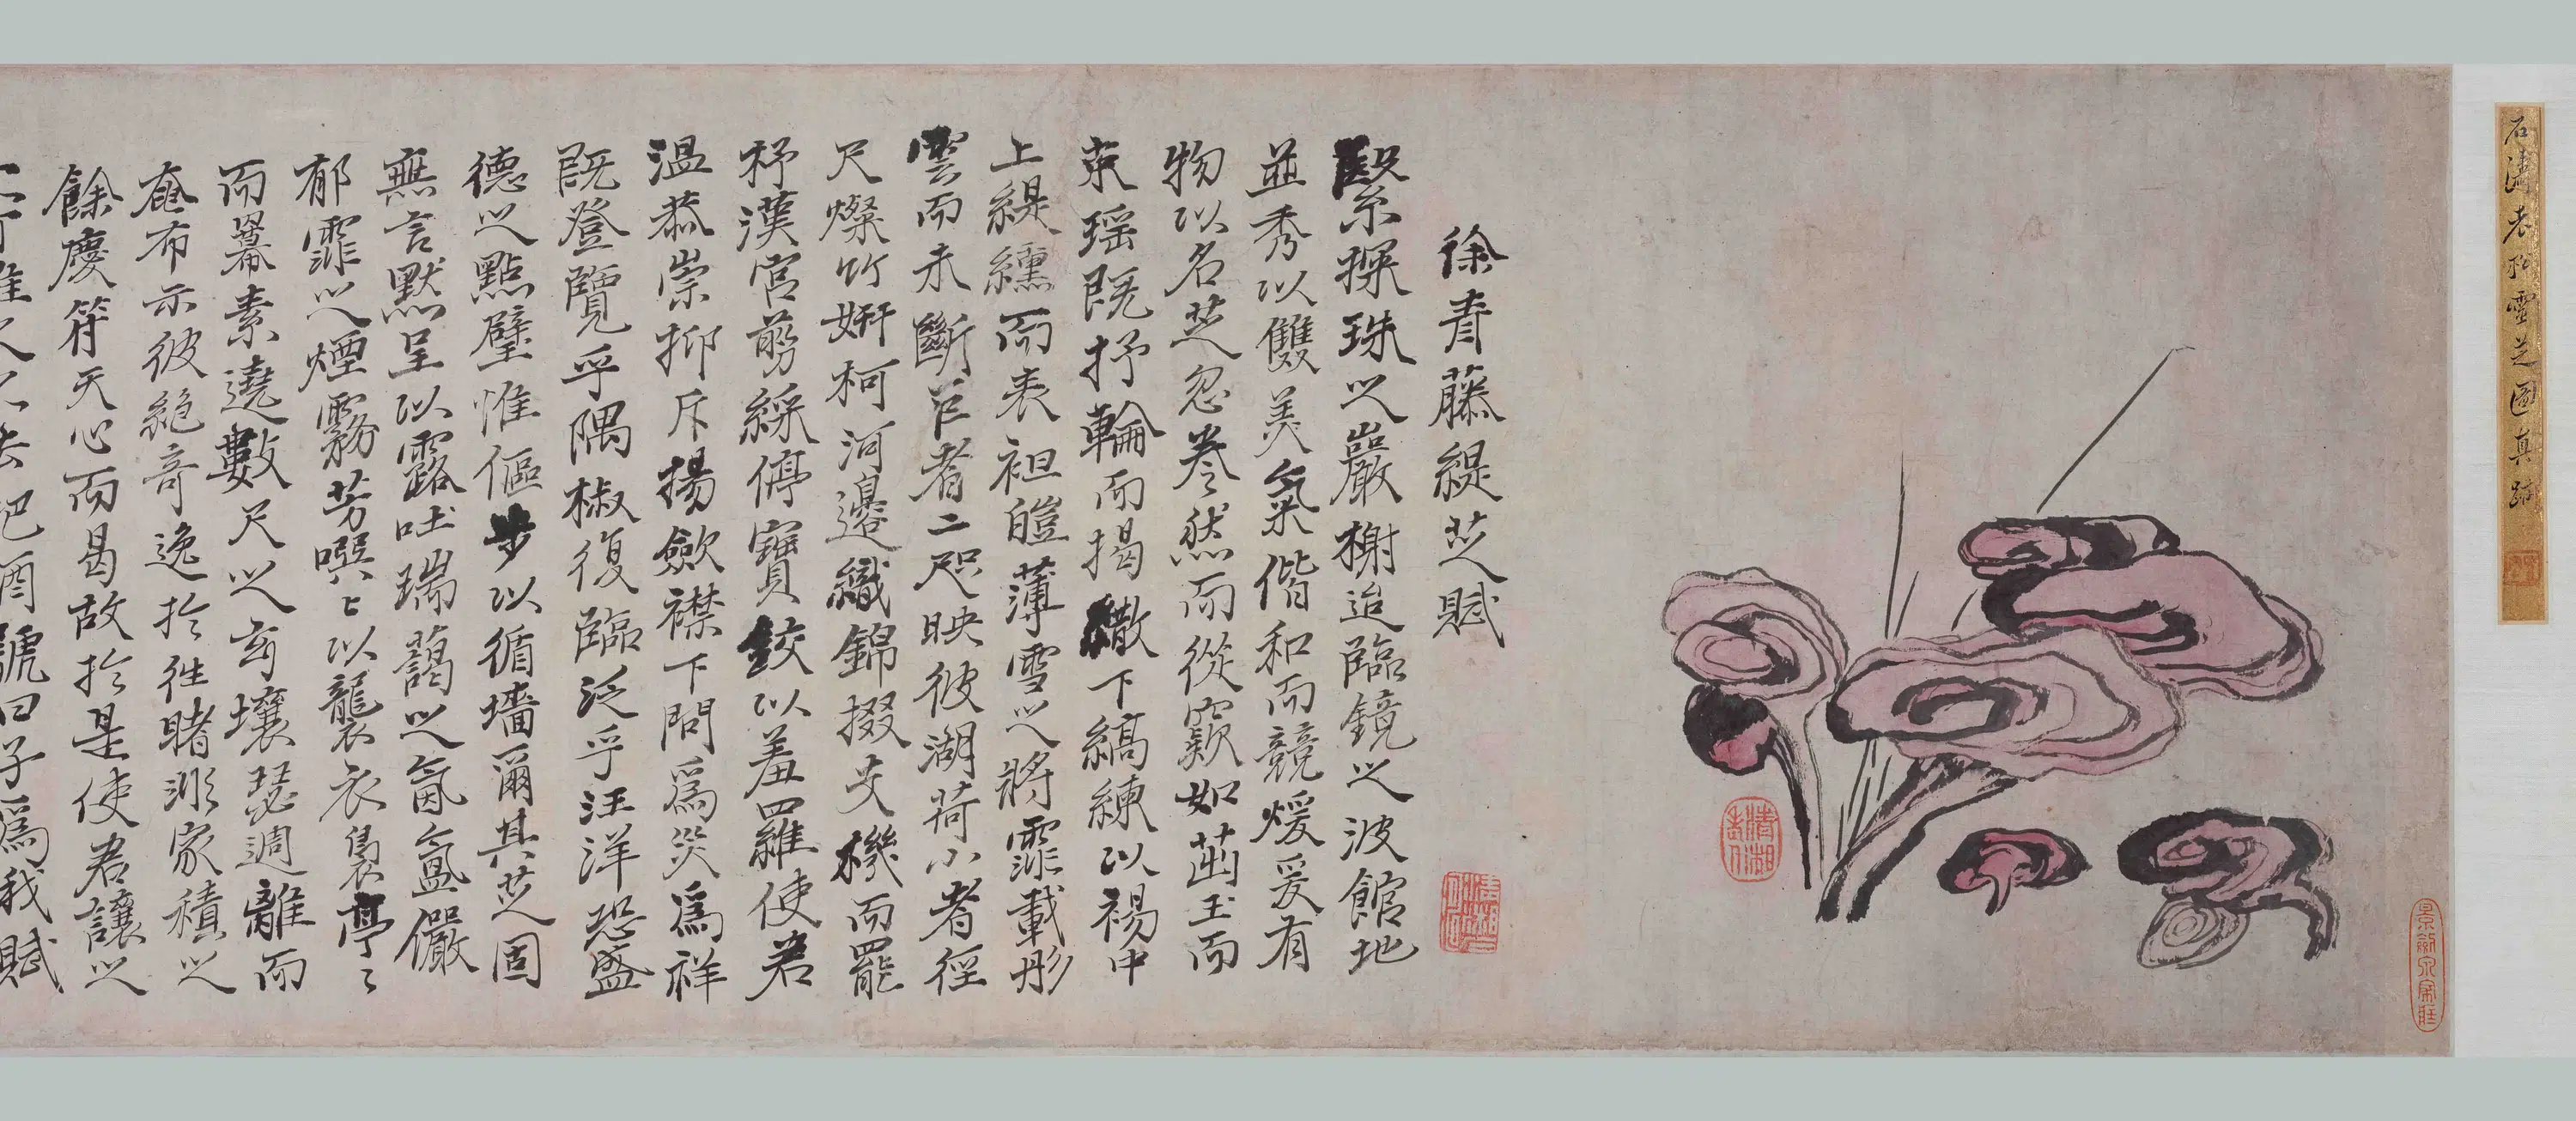 石濤老松靈芝圖真跡
清湘老人
徐青藤緹芝賦
繄探珠之巖榭迨臨鏡之波館地
並秀以雙美氣偕和而競煖爰有
物以名芝忽卷然而從窾如茁玉而
束瑤既抒輪而揭繖下縞練以裼中
上緹纁而表袒皚薄雪之將霏載彤
雲而未斷巨者二咫映彼湖荷小者徑
尺燦竹妍柯河邊織錦掇支機而罷
杼漢宮剪綵停寶鉸以羞羅使君
溫恭崇抑斥揚歛襟下問爲災爲祥
既登覽乎隅椒復臨泛乎汪洋恐盛
德之點璧惟傴步以循墻爾其芝固
無言默呈以露吐瑞藹之氤氳儼
郁霏之煙霧芳噀〻以襲衣裊亭〻
而冪素遶數尺之玄壤瑟週離而
奄布示彼絕奇逸於徃睹渺家積之
餘慶符天心而曷故於是使君讓之
酒號曰子爲我賦